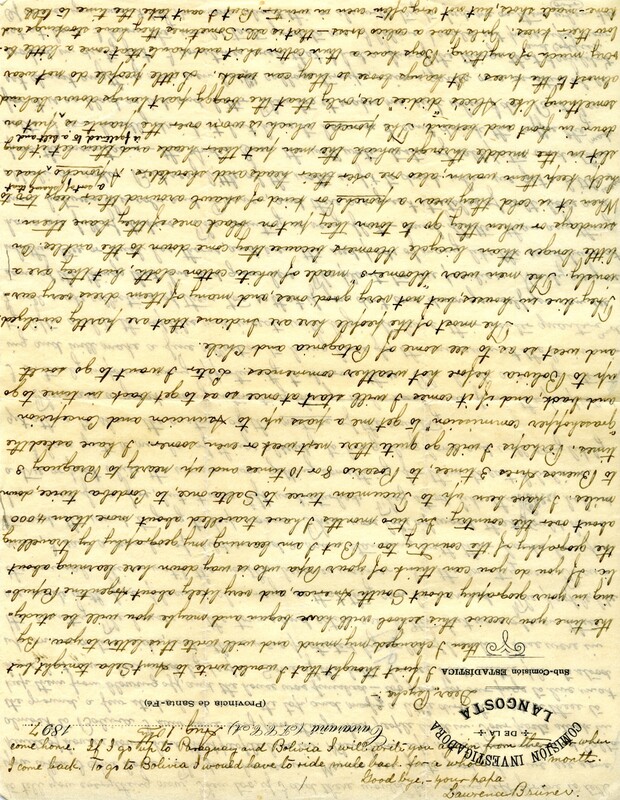 COMISION INVESTIGADORA
DE LA
LANGOSTA
SUB-COMISIÓN ESTADISTICA
Carcarañá (F.C.C.A.) Aug. 1897.
(Provincia de Santa-Fé)
Dear Psyche:-
I first thought that I would write to Aunt Seba tonight, but
then I changed my mind and will write this letter to you. By
the time you receive this school will have began and maybe you will be study-
ing your geography about South America, and very likely Argentine Repub-
lic. If you do you can think of your Papa who is way down here learning about
the geography of the country too. But I am learning my geography by travelling
about over the country. In two months I have travelled about more than 4,000
miles. I have been up to Tucuman twice, to Salta once, to Cordoba twice, down
to Buenos Aires 3 times, to Rosario 8 or 10 times and up nearly to Paraguay 3
times. Perhaps I will go quite there next week or even sooner. I have asked the
"grasshopper commission" to get me a pass up to Asuncion and Concepcion
and back and if it comes I will start at once so as to get back in time to go
up to Bolivia before hot weather commences. Later I want to go south
and west so as to see some of Patagonia and Chile.
The most of the people here are Indians that are partly civilized.
They live in houses, but not very good ones, and many of them dress very cur-
iously. The men wear "bloomers" made of white cotton cloth, but they are a
little longer than bicycle bloomers because they come down to the ankles. On
sundays or when they go to town they put on black ones if they have them.
When it is cold they wear a poncho or kind of shawl around their legs too
help keep them warm; also one over their head and shoulders. A poncho has a
slit in the middle through which the men put their heads and then let it hang
down in front and behind. The poncho which is worn over the pants is
something like Alice's "didies" are, only, that the baggy part hangs down behind
almost to the knees. It hangs loose so they can walk. Little people do not wear
very much of anything. Boys have a thin cotton shirt and pants that come a little be-
low their knees. Girls have a calico dress - that is all. Sometimes they have stockings and
home-made shoes, but not very often even in winter. But I cant take the time to tell
come home. If I go up to Paraguay and Bolivia I will write you when
I come back. To go to Bolivia I would have to ride mule back for a whole month.
Good bye, - your papa
Lawrence Bruner.